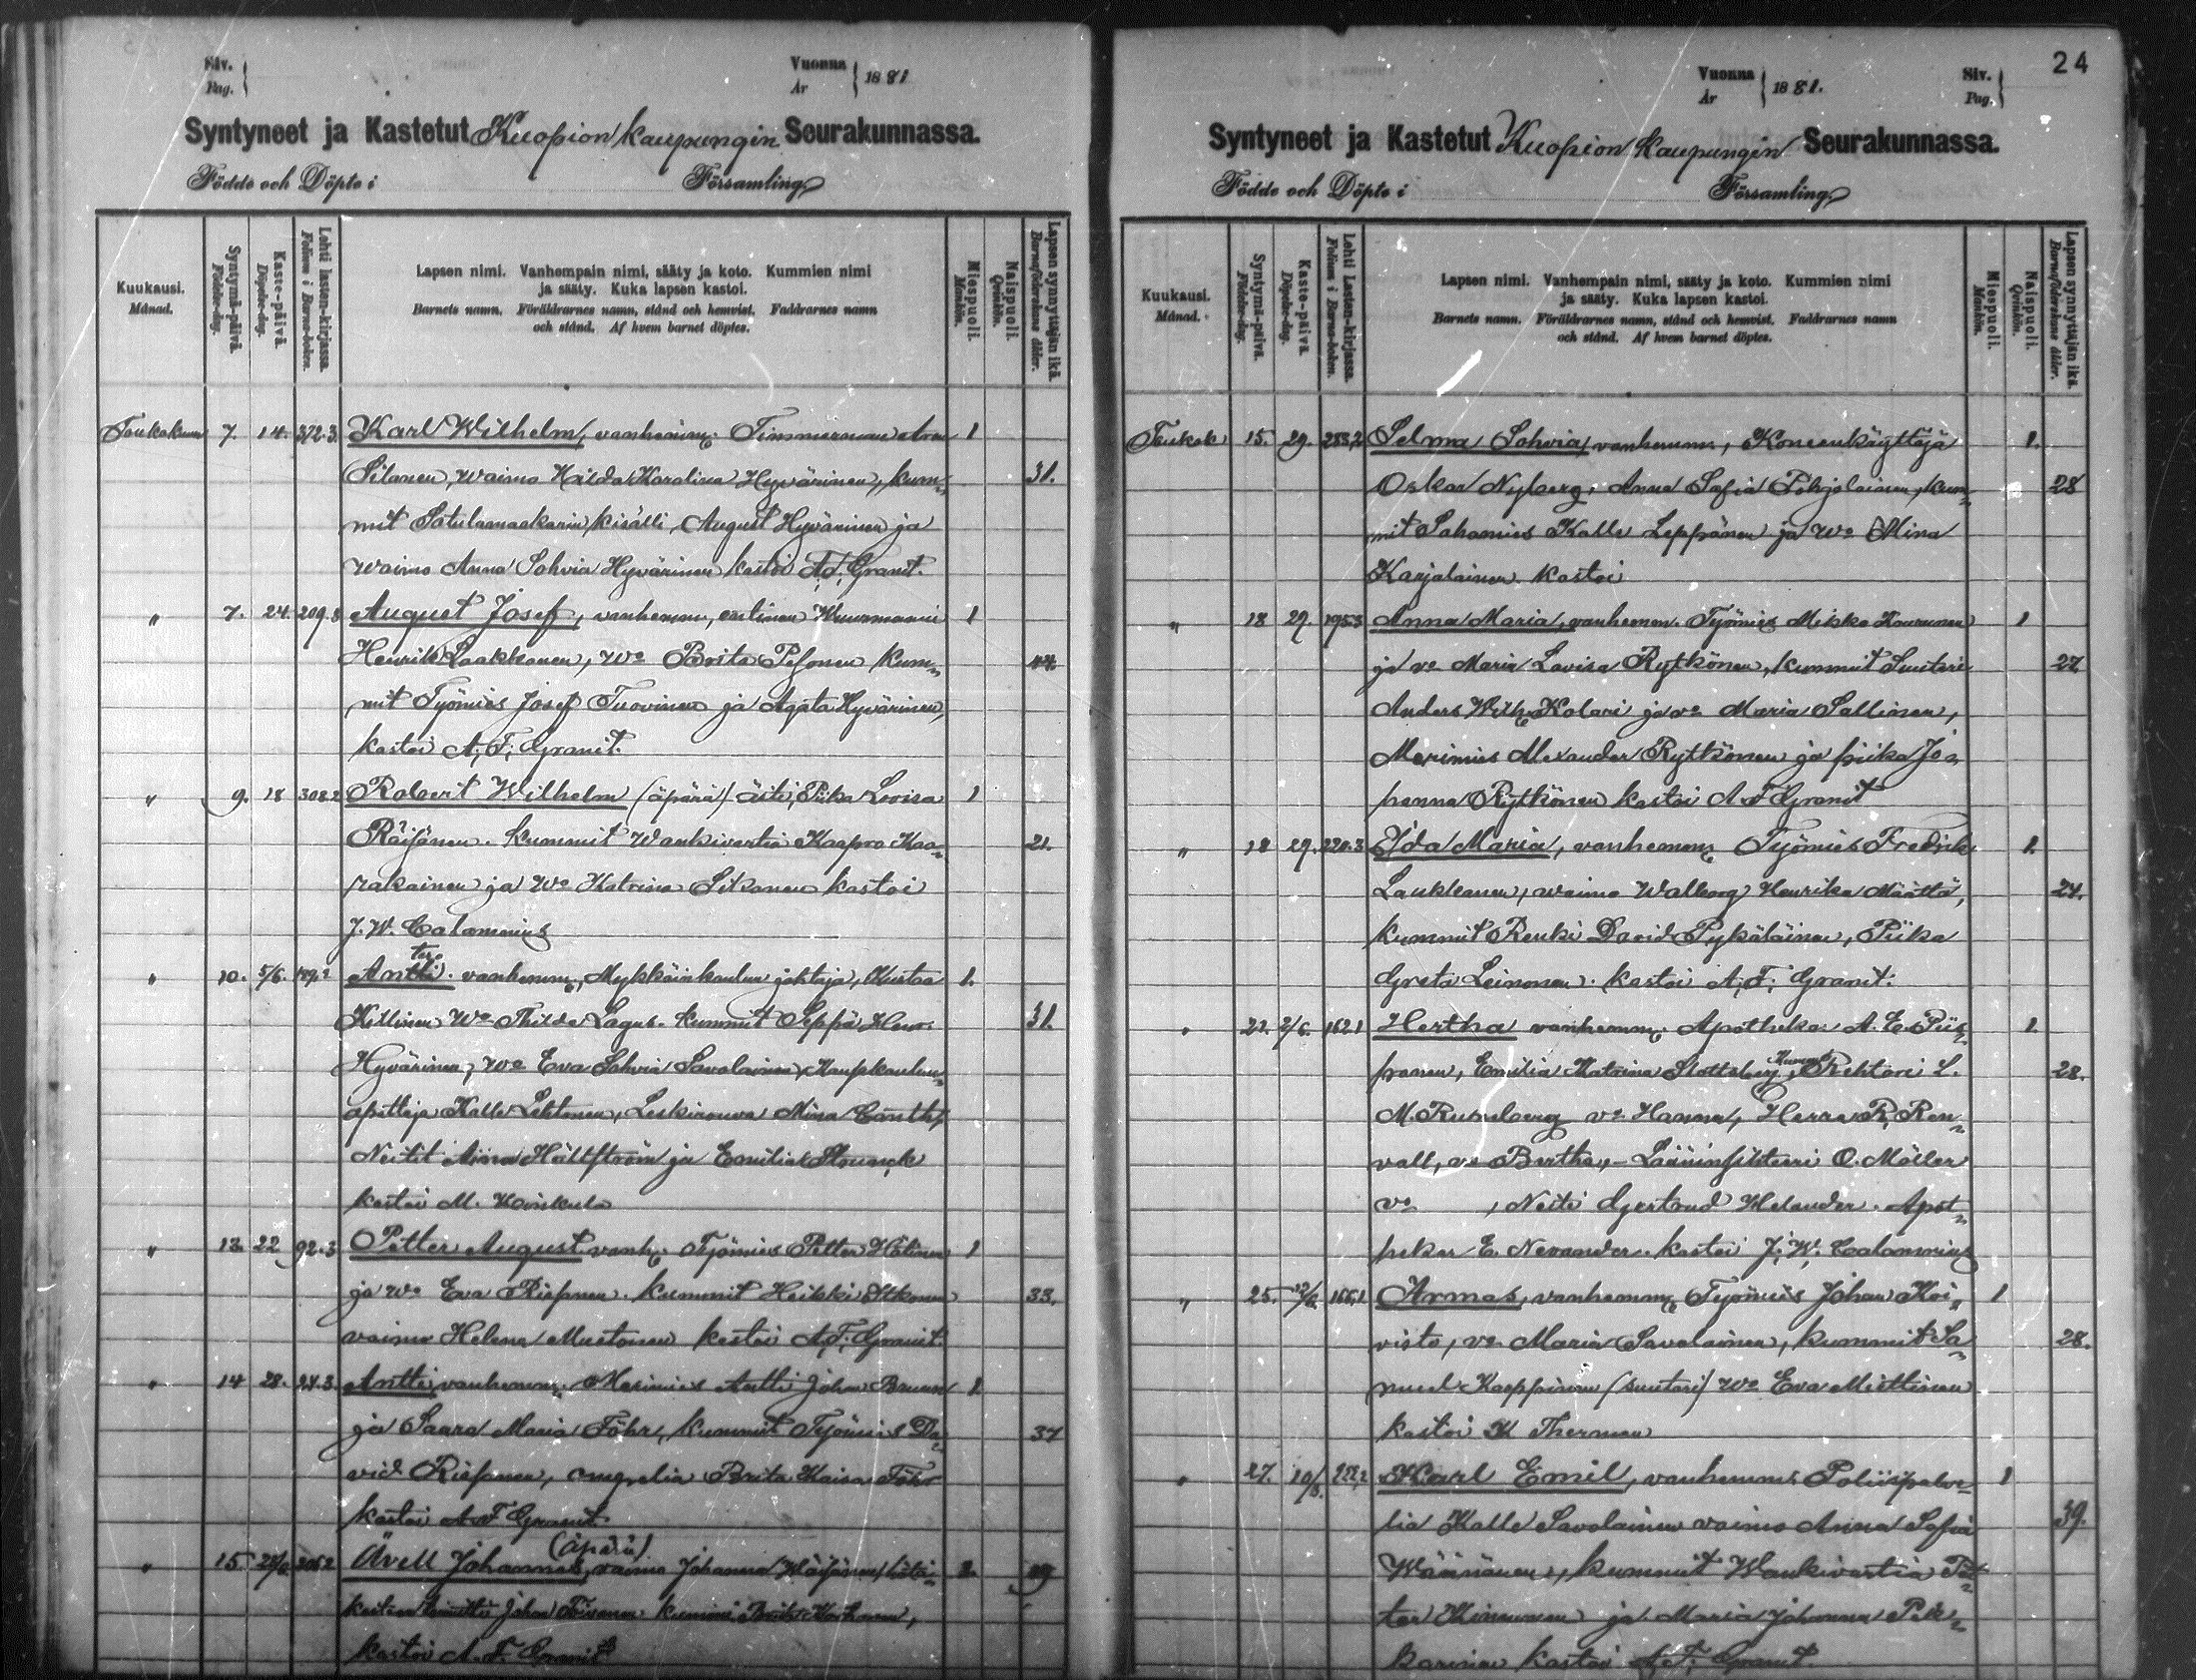 Siv. Pag.
Vuonna År 1881
Syntyneet ja Kastetut Kuopion kaupungin Seurakunnassa.
Födde och Döpte i Församling
Kuukausi. Månad.
Syntymä-päivä. Födelse-dag.
Kaste-päivä. Döpelse-dag.
Lehti lasten-kirjassa. Folium i Barna-boken.
Lapsen nimi. Vanhempain nimi, sääty ja koto. Kummien nimi
ja sääty. Kuka lapsen kastoi.
Barnets namn. Föräldrarnes namn, stånd och hemvist. Faddrarnes namn
och stånd. Af hvem barnet döptes.
Miespuoli. Mankön.
Naispuoli. Qvinkön.
Lapsen synnyttäjän ikä. Barnaföderskans ålder.
Toukokuu 7. 14. 372.3. Karl Wilhelm, vanhemm: Timmermanni 1
Silanen, waimo Hilda Karolina Hyvärinen, kum- 31.
mit Satulamaakarin kisälli August Hyvärinen ja
waimo Anna Sohvia Hyvärinen kastoi A.F. Granit.
" 7. 24. 209.3 August Josef, vanhemm, entinen 1
Henrik Laakkonen, wo Brita Pesonen kum- 44
mit Työmies Josef Tuovinen ja Agata Hyvärinen,
kastoi A. F. Granit.
" 9. 18 308.2 Robert Wilhelm (äpärä) äiti, Piika Lovisa 1
Räisänen. Kummit Wankivartia Kaapro Kaa- 21.
rakainen ja wo Katrina Sitkonen kastoi
J. W. Calamnius
" 10. 5/6. Antti. vanhemm, Mykkäinkoulun johtaja, Kustaa 1.
Killinen wo Thilda Lagus. kummit Seppä Henr. 31.
Hyvärinen, wo Eva Sohvia Savolainen, Kaupkoulun
opettaja Kalle Lehtonen, Leskirouva Mina Canth,
Neitit Aina Hällström ja Emilia Stunck
kastoi M. Koiskula
" 12. 22 92.3 Petter August vanh: Työmies Petter 1
ja wo Eva Riepanen. kummit Heikki Itkonen 33.
vaimo Helena Mustonen kastoi A.F. Granit.
" 14 28. 24.3. Antti, vanhemm: Merimies Antti Johan 1
ja Saara Maria Föhr, kummit Työmies Da- 37
vid Riepanen, Brita Kaisa Föhr
kastoi A.F. Granit
(äpärä)
" 15. Johannes, vaimo Johanna Wäisänen,
Johan kummi Brita Korhonen,
kastoi A. F. Granit
24
Vuonna År 1881.
Siv. Pag.
Syntyneet ja Kastetut Kuopion kaupungin Seurakunnassa.
Födde och Döpte i Församling
Kuukausi. Månad.
Syntymä-päivä. Födelse-dag.
Kaste-päivä. Döpelse-dag.
Lehti Lasten-kirjassa. Folium i Barna-boken.
Lapsen nimi. Vanhempain nimi, sääty ja koto. Kummien nimi
ja sääty. Kuka lapsen kastoi.
Barnets namn. Föräldrarnes namn, stånd och hemvist. Faddrarnes namn
och stånd. Af hvem barnet döptes.
Miespuoli. Mankön.
Naispuoli. Qvinkön.
Lapsen synnyttäjän ikä. Barnaföderskans ålder.
Toukok. 15. 29. 253,2 Selma Sohvia, vanhemm, Koneenkäyttäjä 1.
Oskar Nyberg, Anna Sofia Pohjolainen, kum- 28
mit Sahamies Kalle Leppänen ja wo Mina
Karjalainen. kastoi
" 18 29. 195.3 Anna Maria, vanhemm. Työmies Mikko Kaurunen 1
ja vo Maria Lovisa Rytkönen, kummit Suutari 27.
Anders Wilh: Kolari ja vo Maria Sallinen,
Merimies Alexander Rytkönen ja piika Jo-
hanna Rytkönen kastoi A. F. Granit
" 18 29. 220.3 Ida Maria, vanhemm: Työmies Fredrik 1.
Laukkanen, waimo Walborg Henrika Määttä, 24.
kummit Renki David Pykäläinen, Piika
Greta Leinonen. kastoi A. F. Granit.
" 22. 2/6. 162.1 Hertha vanhemm: Apotheka. A. E. Piis- 1.
panen, Emilia Katrina Slottsberg, Kummit Rehtori L. 28.
M. Runeberg vo Hanna, Herra R. Ren-
vall, vo Bertha, Lääninsihteeri O. Möller
vo , Neiti Gertrud Helander. Apot-
hekar E. Nevander. kastoi J. W. Calamnius
" 25. 12/6. 166.1 Armas, vanhemm: Työmies Johan Koi- 1
visto, vo Maria Savolainen, kummit Sa- 28.
muel Kaeppinen (suutari) wo Eva Miettinen
kastoi K Therman
" 27. 10/6. 222,2 Karl Emil, vanhemm: Poliispalve- 1
lia Kalle Savolainen vaimo Anna Sofia 39.
Wäänänen, kummit Wankivartia Pet-
ter Kinnunen ja Maria Johanna Pek-
karinen kastoi A. F. Granit.